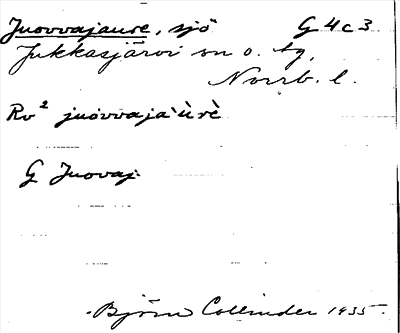 Juovvajaure, sjö G 4 c 3
Jukkasjärvi sn o. tg,
Norrb. l.
Rv² juovvaja'ùrè
G Juovaj
Björn Collinder 1935.